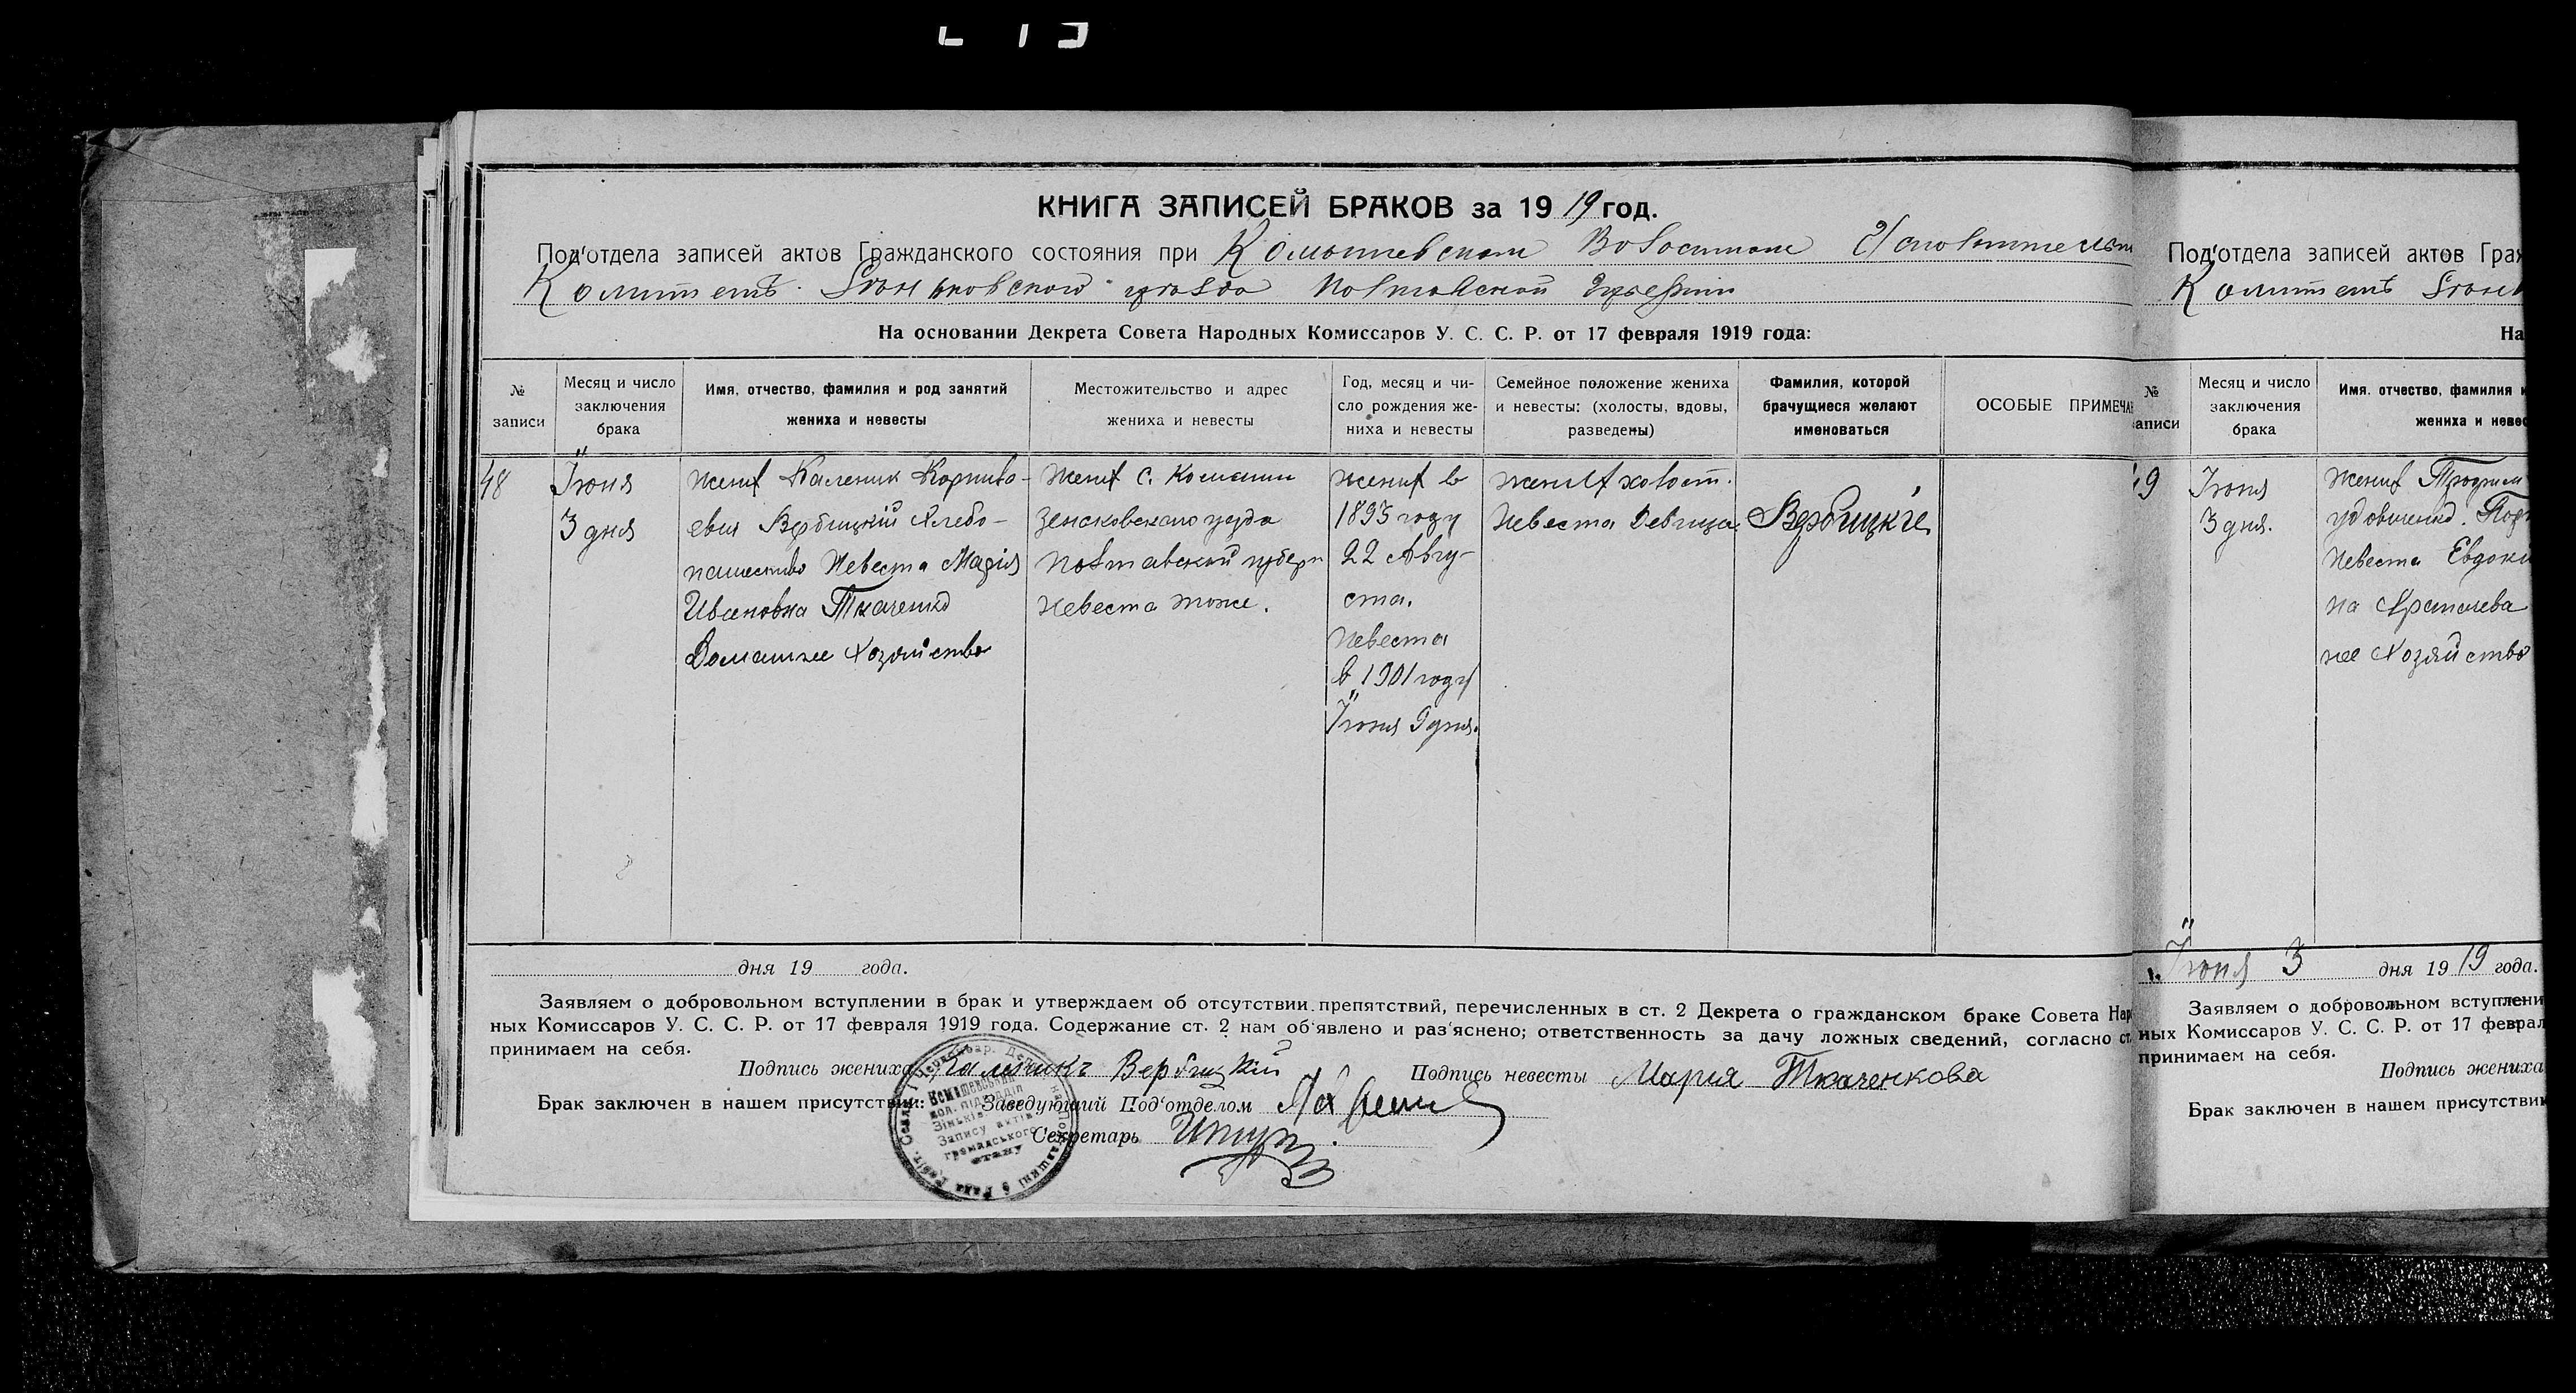 КНИГА ЗАПИСЕЙ БРАКОВ за 1919 год.
Под'отдела записей актов Гражданского состояния при Комышевском Волостном
Комитетѣ Зѣньковского уѣзда Полтавской Губернии
На основании Декрета Совета Народных Комиссаров У. С. С. Р. от 17 февраля 1919 года:
№ записи
Месяц и число заключения брака
Имя, отчество, фамилия и род занятий жениха и невесты
Местожительство и адрес жениха и невесты
Год, месяц и число рождения жениха и невесты
Семейное положение жениха и невесты: (холосты, вдовы, разведены)
Фамилия, которой брачущиеся желают именоваться
ОСОБЫЕ ПРИМЕЧА
48
Iюня
3 дня
жених Каленик Корнило-
евич Вербицкiй Хлебо-
пашество Невеста Марiя
Ивановна Ткаченко
Домашнее Хозяйство
жених с. Комыши
Зеньковского уезда
Полтавской губерн
невеста тоже.
жених в
1893 году
22 Авгу-
ста.
невеста
в 1901 году
Iюня 9 дня.
жених холост.
Невеста Девица.
Вербицкiе
дня 19 года.
Заявляем о добровольном вступлении в брак и утверждаем об отсутствии препятствий, перечисленных в ст. 2 Декрета о гражданском браке Совета Нар
ных Комиссаров У. С. С. Р. от 17 февраля 1919 года. Содержание ст. 2 нам об'явлено и раз'яснено; ответственность за дачу ложных сведений, согласно ст.
принимаем на себя.
Подпись жениха Каленикъ Вербицкий Подпись невесты Мария Ткаченкова
Брак заключен в нашем присутствии: Заведующий Под'отделом
Секретарь
Запису актів
громадського
стану
Под'отдела записей актов Граж
Комитетѣ Зѣньк
На
№ записи
Месяц и число заключения брака
Имя, отчество, фамилия и
жениха и невес
49
Iюня
3 дня.
жених
Удовиченко.
Невеста Евдоки
на
нее Хозяйство
Iюня 3 дня 1919 года.
Заявляем о добровольном вступлени
ных Комиссаров У. С. С. Р. от 17 феврал
принимаем на себя.
Подпись жениха
Брак заключен в нашем присутствии